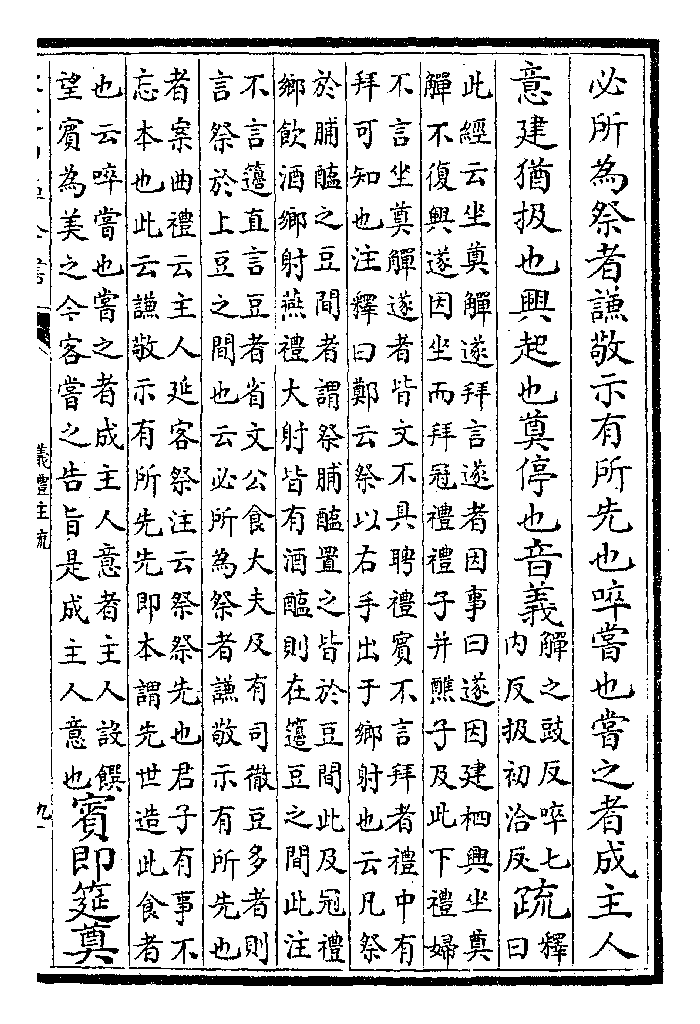 必所為祭者謙敬示有所先也啐嘗也嘗之者成主人
意建猶扱也興起也奠停也音義觶之豉反啐七
內反扱初洽反疏釋
曰
此經云坐奠觶遂拜言遂者因事曰遂因建柶興坐奠
觶不復興遂因坐而拜冠禮禮子并醮子及此下禮婦
不言坐奠觶遂者皆文不具聘禮賓不言拜者禮中有
拜可知也注釋曰鄭云祭以右手出于鄉射也云凡祭
於脯醢之豆間者謂祭脯醢置之皆於豆間此及冠禮
鄉飲酒鄉射燕禮大射皆有酒醢則在籩豆之間此注
不言籩直言豆者省文公食大夫及有司徹豆多者則
言祭於上豆之間也云必所為祭者謙敬示有所先也
者案曲禮云主人延客祭注云祭祭先也君子有事不
忘本也此云謙敬示有所先先即本謂先世造此食者
也云啐嘗也嘗之者成主人意者主人設饌
望賓為美之今客嘗之告旨是成主人意也
賓即筵奠
九